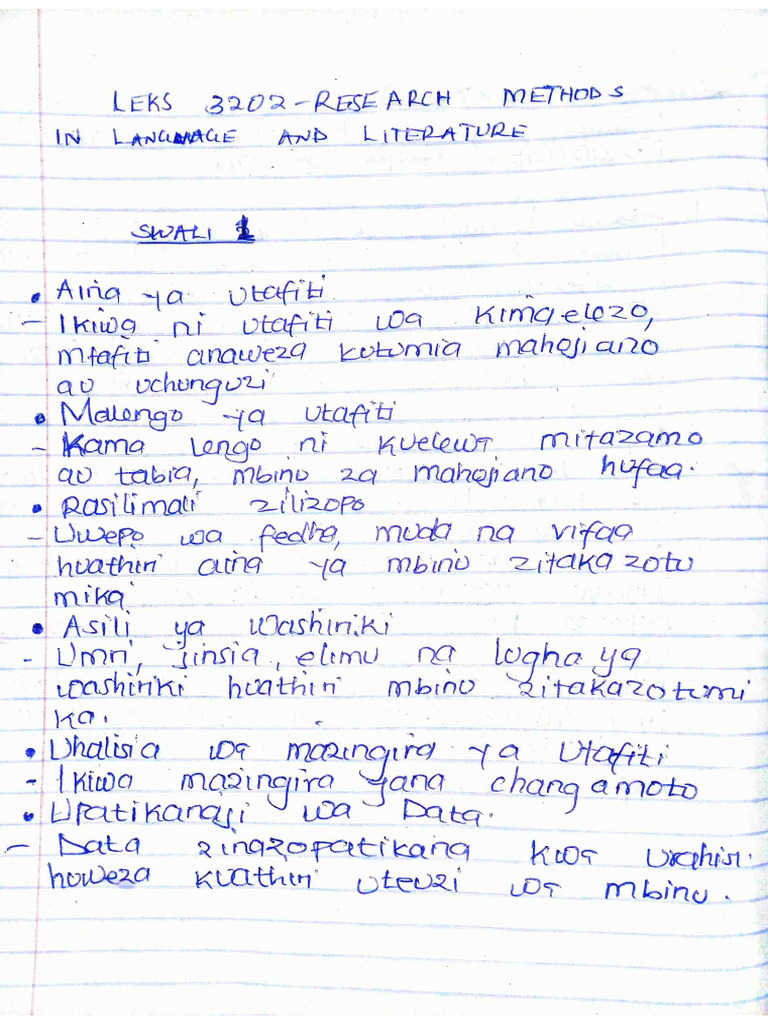 LEKS 3202 - RESEARCH METHODS
IN LANGUAGE AND LITERATURE
SWALI 1
• Aina ya utafiti
- Ikiwa ni utafiti wa kimaelezo,
mtafiti anaweza kutumia mahojiano
au uchunguzi
• Malengo ya utafiti
- Kama lengo ni kuelewa mitazamo
au tabia, mbinu za mahojiano hufaa.
• Rasilimali zilizopo
- Uwepo wa fedha, muda na vifaa
huathiri aina ya mbinu zitakazotu
mika
• Asili ya washiriki
- Umri, jinsia, elimu na lugha ya
washiriki huathiri mbinu zitakazotumi
ka.
• Uhalisia wa mazingira ya utafiti
- Ikiwa mazingira yana changamoto
• Upatikanaji wa Data.
- Data zinazopatikana kwa urahisi
huweza kuathiri uteuzi wa mbinu.